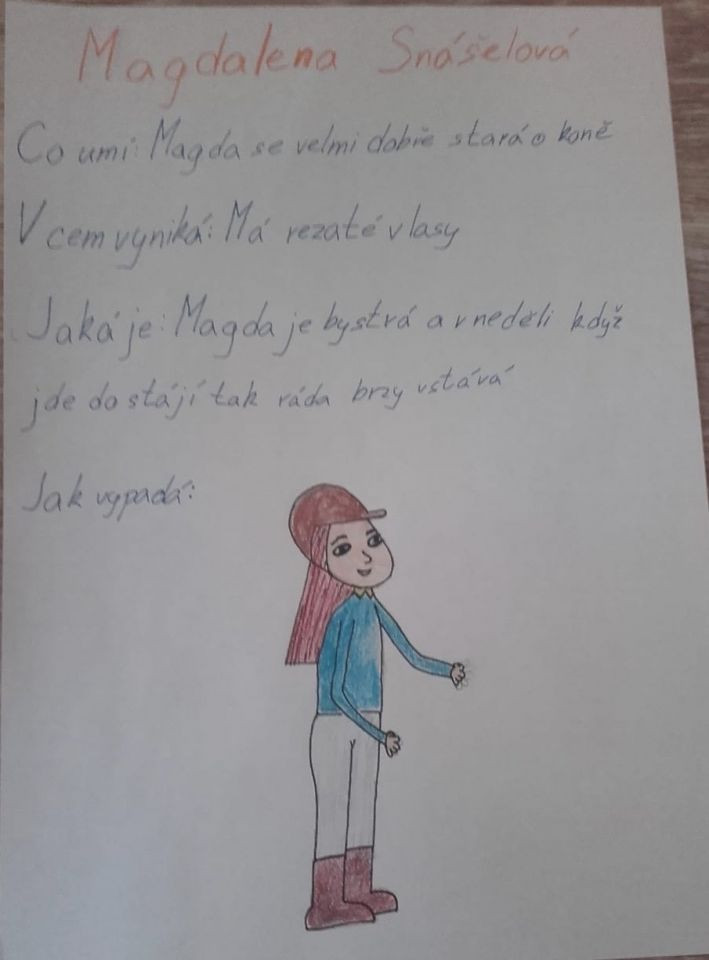 Magdalena Snášelová
Co umi: Magda se velmi dobře stará o koně
V cem vyniká: Má rezaté vlasy
Jaká je: Magda je bystrá a v neděli když
jde do stájí tak ráda brzy vstává
Jak vypadá: